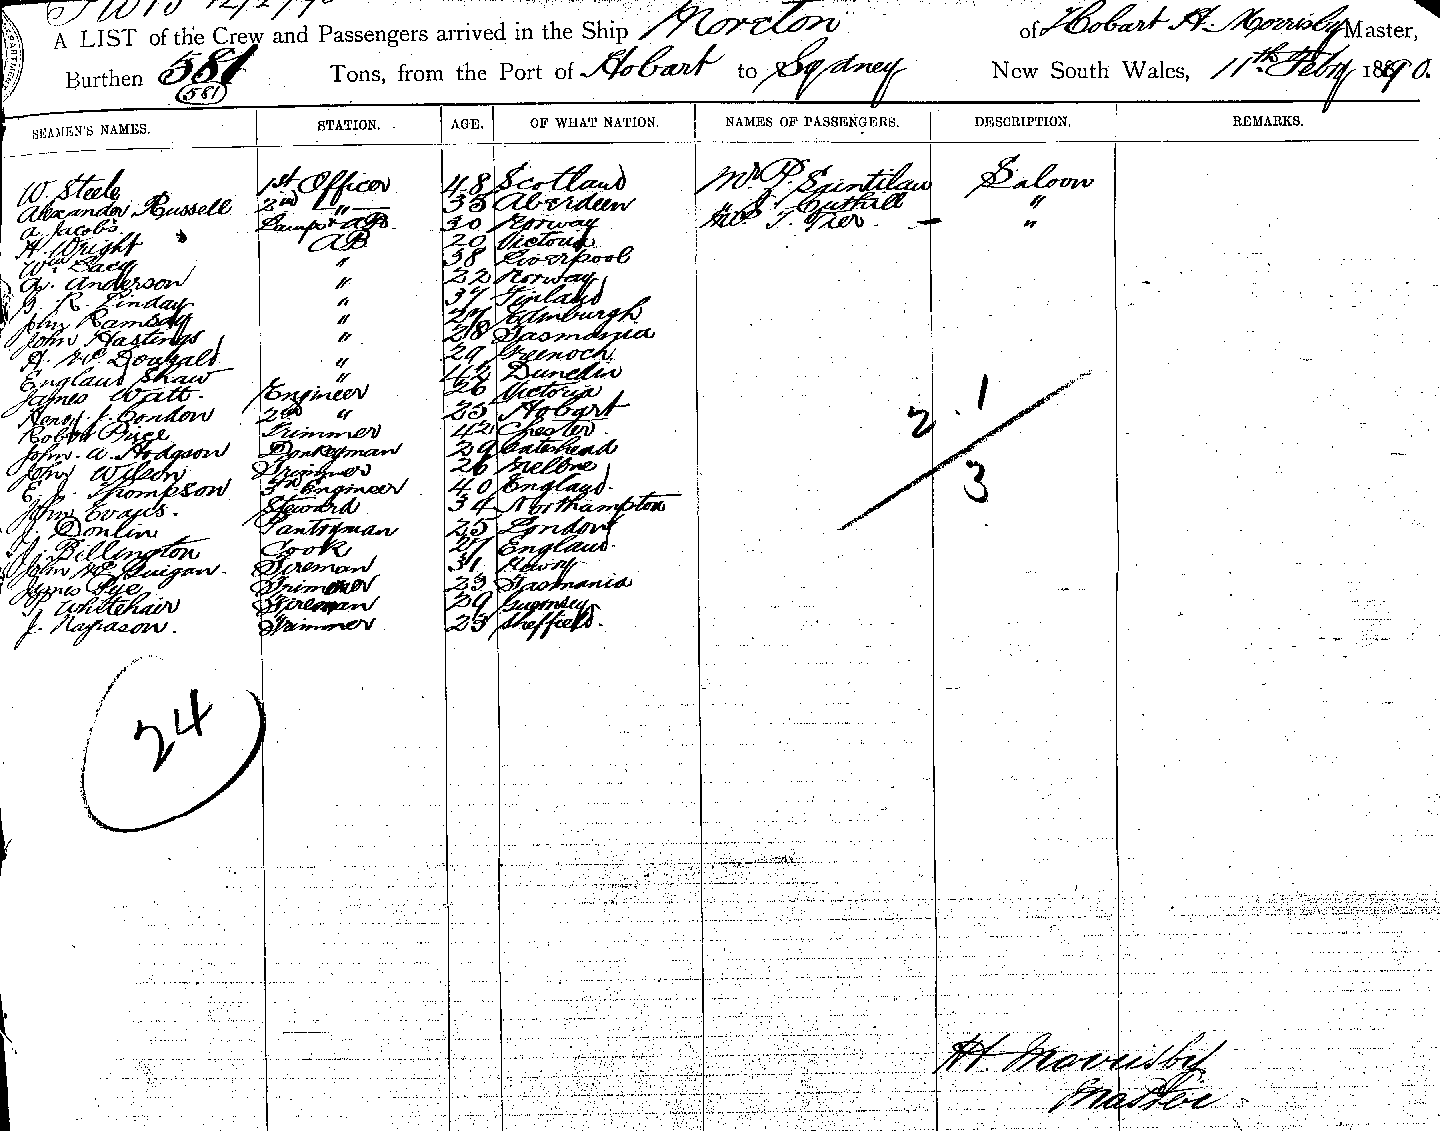 A LIST of the Crew and Passengers arrived in the Ship Moreton of Hobart H. Morrisby Master,
Burthen 581 Tons, from the Port of Hobart to Sydney New South Wales, 11th Feby 1890.
581
SEAMEN'S NAMES. STATION. AGE. OF WHAT NATION. NAMES OF PASSENGERS. DESCRIPTION. REMARKS.
W Steele 1st Officer 48 Scotland Mr P. Saintilau Saloon
Alexander Russell 2nd " 33 Aberdeen " J. Cuthill "
A Jacobs Lamps & AB 30 Norway T. Tier "
H. Wright AB 20 Victoria
Wm Lacy " 38 Liverpool
A. Anderson " 22 Norway
J. R. Linday " 37 Finland
John Ramsay " 27 Edinburgh
John Hastings " 28 Tasmania
A. McDougald " 29 Greenock
England Shaw " 42 Dunedin
James Watt. Engineer 26 Victoria
Henry J. Condon 2nd " 25 Hobart
Robert Price Trimmer 42 Chester
John. A. Hodgson Donkeyman 29 Gateshead
John Wilson Trimmer 26 Melbne
Thompson 3rd Engineer 40 England
John Evans. Steward 34 Northampton
J. Donlin Pantryman 25 London
J. Billington Cook 27 England.
John McGuigan. Fireman 31
James Pye Trimmer 23 Tasmania
J. Whitehair Fireman 29 Guernsey
J. Trimmer 23 Sheffield.
2 . 1
3
24
H. Morrisby
Master